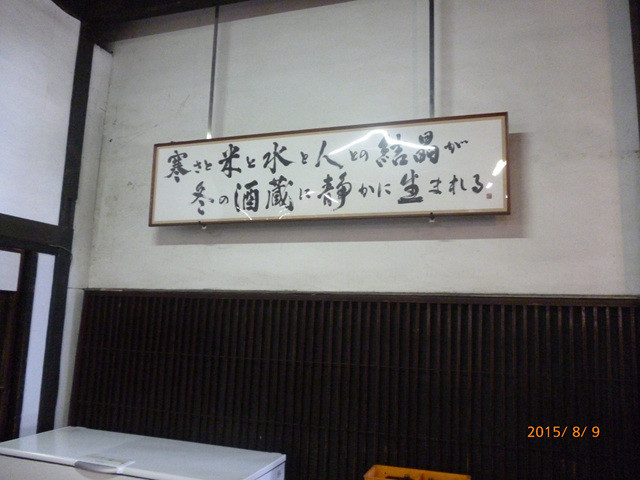 寒さと米と水と人との結晶が
冬の酒蔵に静かに生まれる
2015/ 8/ 9